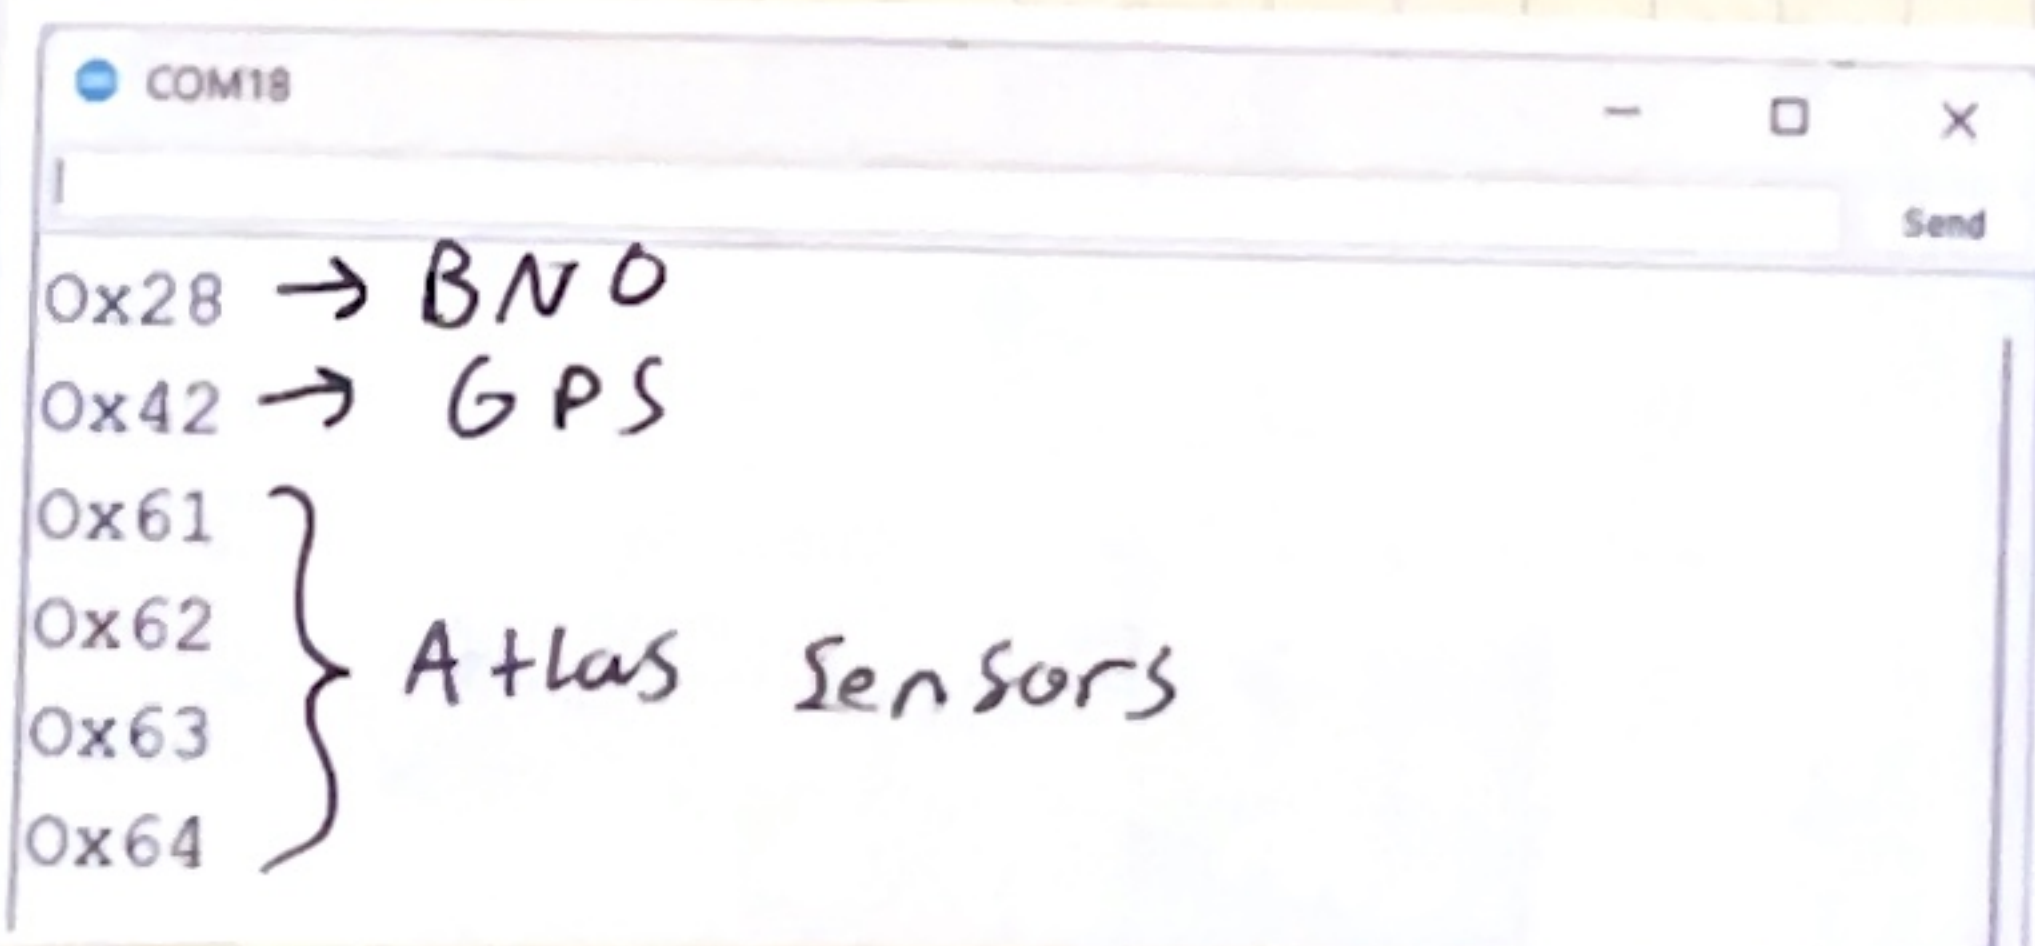 COM18
Send
0x28 → BNO
0x42 → GPS
0x61
0x62
0x63
0x64
Atlas Sensors